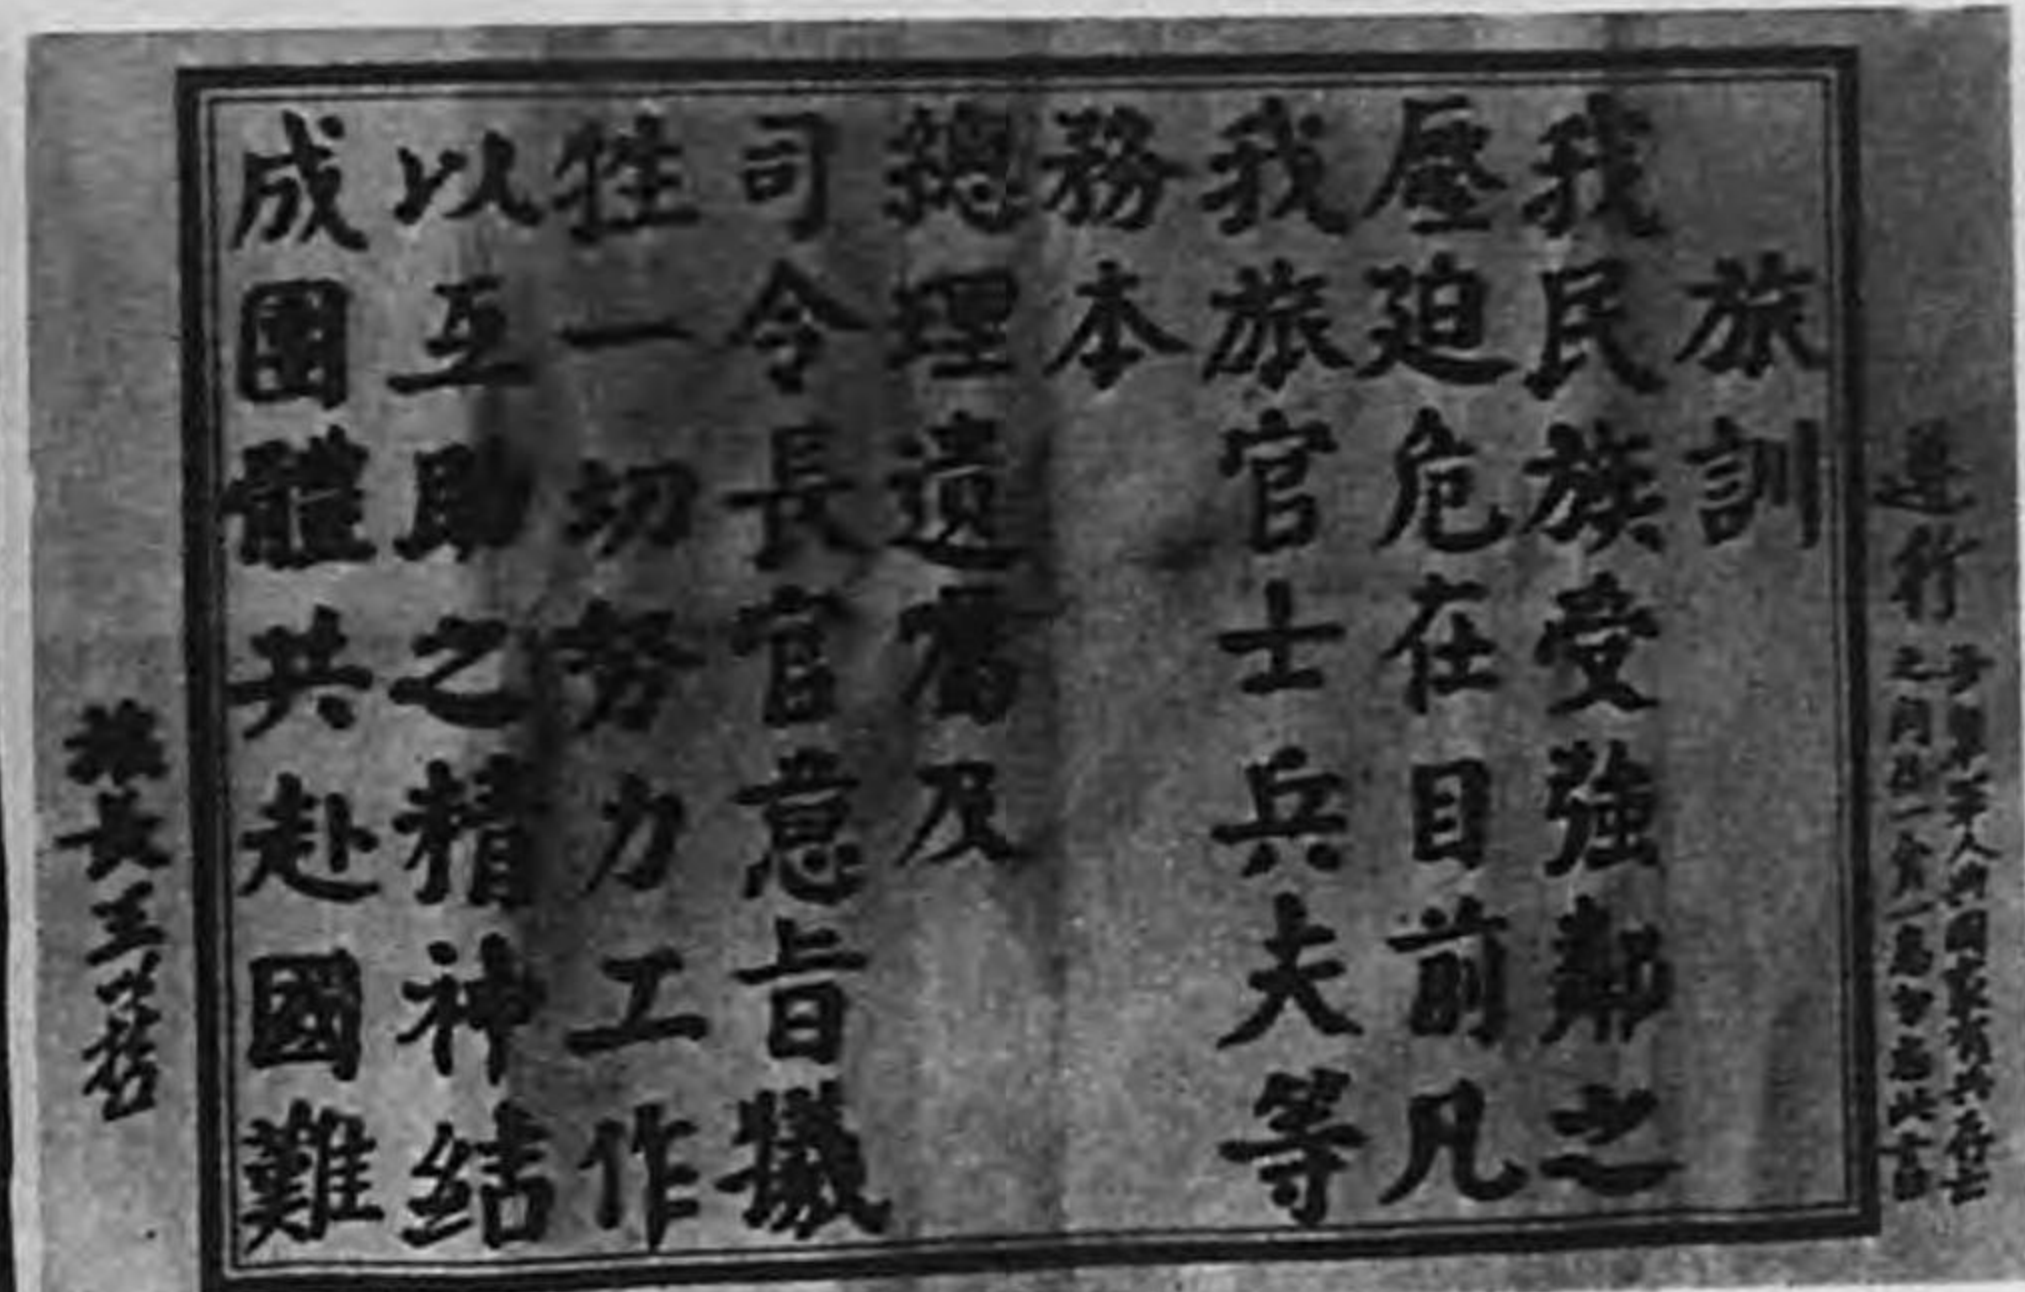 進行
旅訓
我民族受強鄰之
壓迫危在目前凡
我旅官士兵夫等
務本
總理遺囑及
司令長官意旨犧
牲一切努力工作
以互助之精神結
成團體共赴國難
旅長王